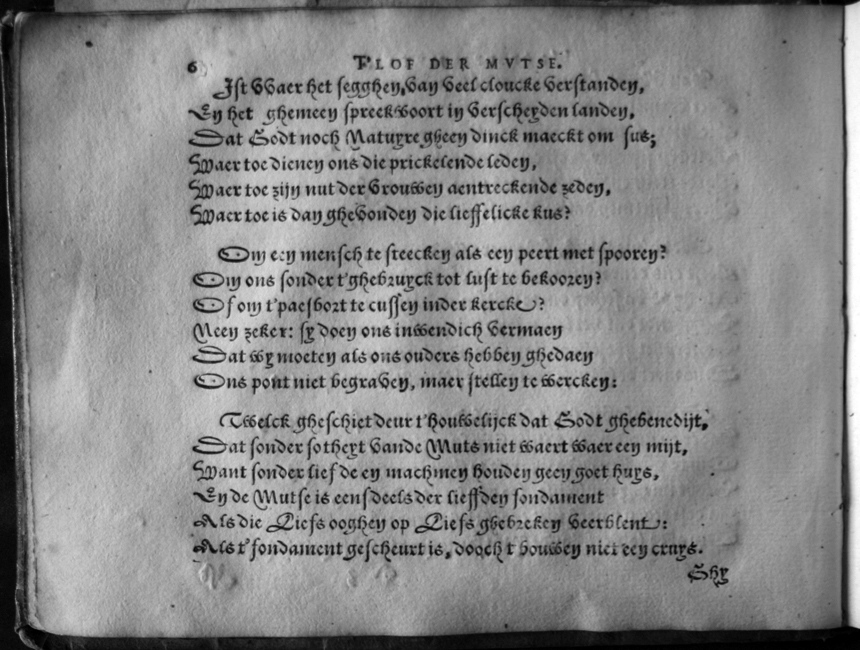 6 T'LOF DER MVTSE.
Ist waer het segghen, van veel cloucke verstanden,
En het ghemeen spreekwoort in verscheyden landen,
Dat Godt noch Natuyre gheen dinck maeckt om sus;
Waer toe dienen ons die prickelende leden,
Waer toe zijn nut der vrouwen aentreckende zeden,
Waer toe is dan ghevonden die lieffelicke kus?
Om een mensch te steecken als een peert met spooren?
Om ons sonder t'ghebruyck tot lust te bekooren?
Of om t'paesbort te cussen inder kercke?
Neen zeker: sy doen ons inwendich vermaen
Dat wy moeten als ons ouders hebben ghedaen
Ons pont niet begraven, maer stellen te wercken:
Twelck gheschiet deur t'houwelijck dat Godt ghebenedijt,
Dat sonder sotheyt vande Muts niet waert waer een mijt,
Want sonder liefde en machmen houden geen goet huys,
En de Mutse is eensdeels der lieffden fondament
Als die Liefs ooghen op Liefs ghebreken veerblent:
Als t'fondament gescheurt is, dooch t bouwen niet een cruys.
Shy